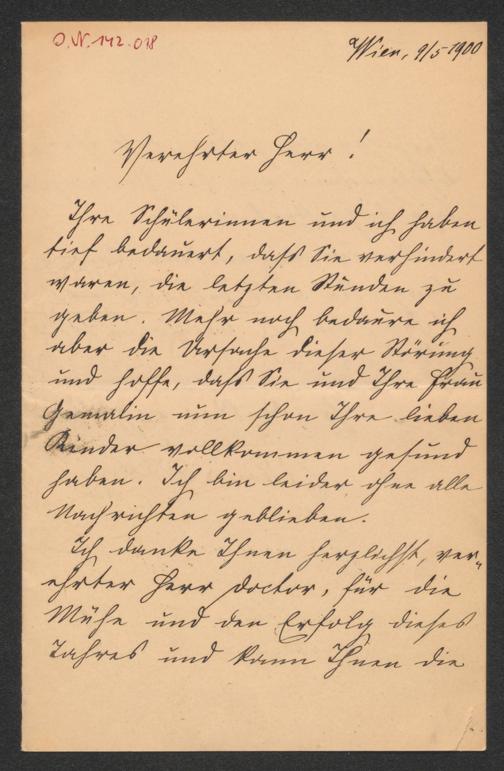 O.N. 142.018
Wien, 9/5 1900
Verehrter Herr!
Ihre Schülerinnen und ich haben
tief bedauert, dass Sie verhindert
waren, die letzten Stunden zu
geben. Mehr noch bedaure ich
aber die Ursache dieser Störung
und hoffe, dass Sie und Ihre Frau
Gemalin nun schon Ihre lieben
Kinder vollkommen gesund
haben. Ich bin leider ohne alle
Nachrichten geblieben.
Ich danke Ihnen herzlichst, ver-
ehrter Herr Doctor, für die
Mühe und den Erfolg dieses
Jahres und kann Ihnen die